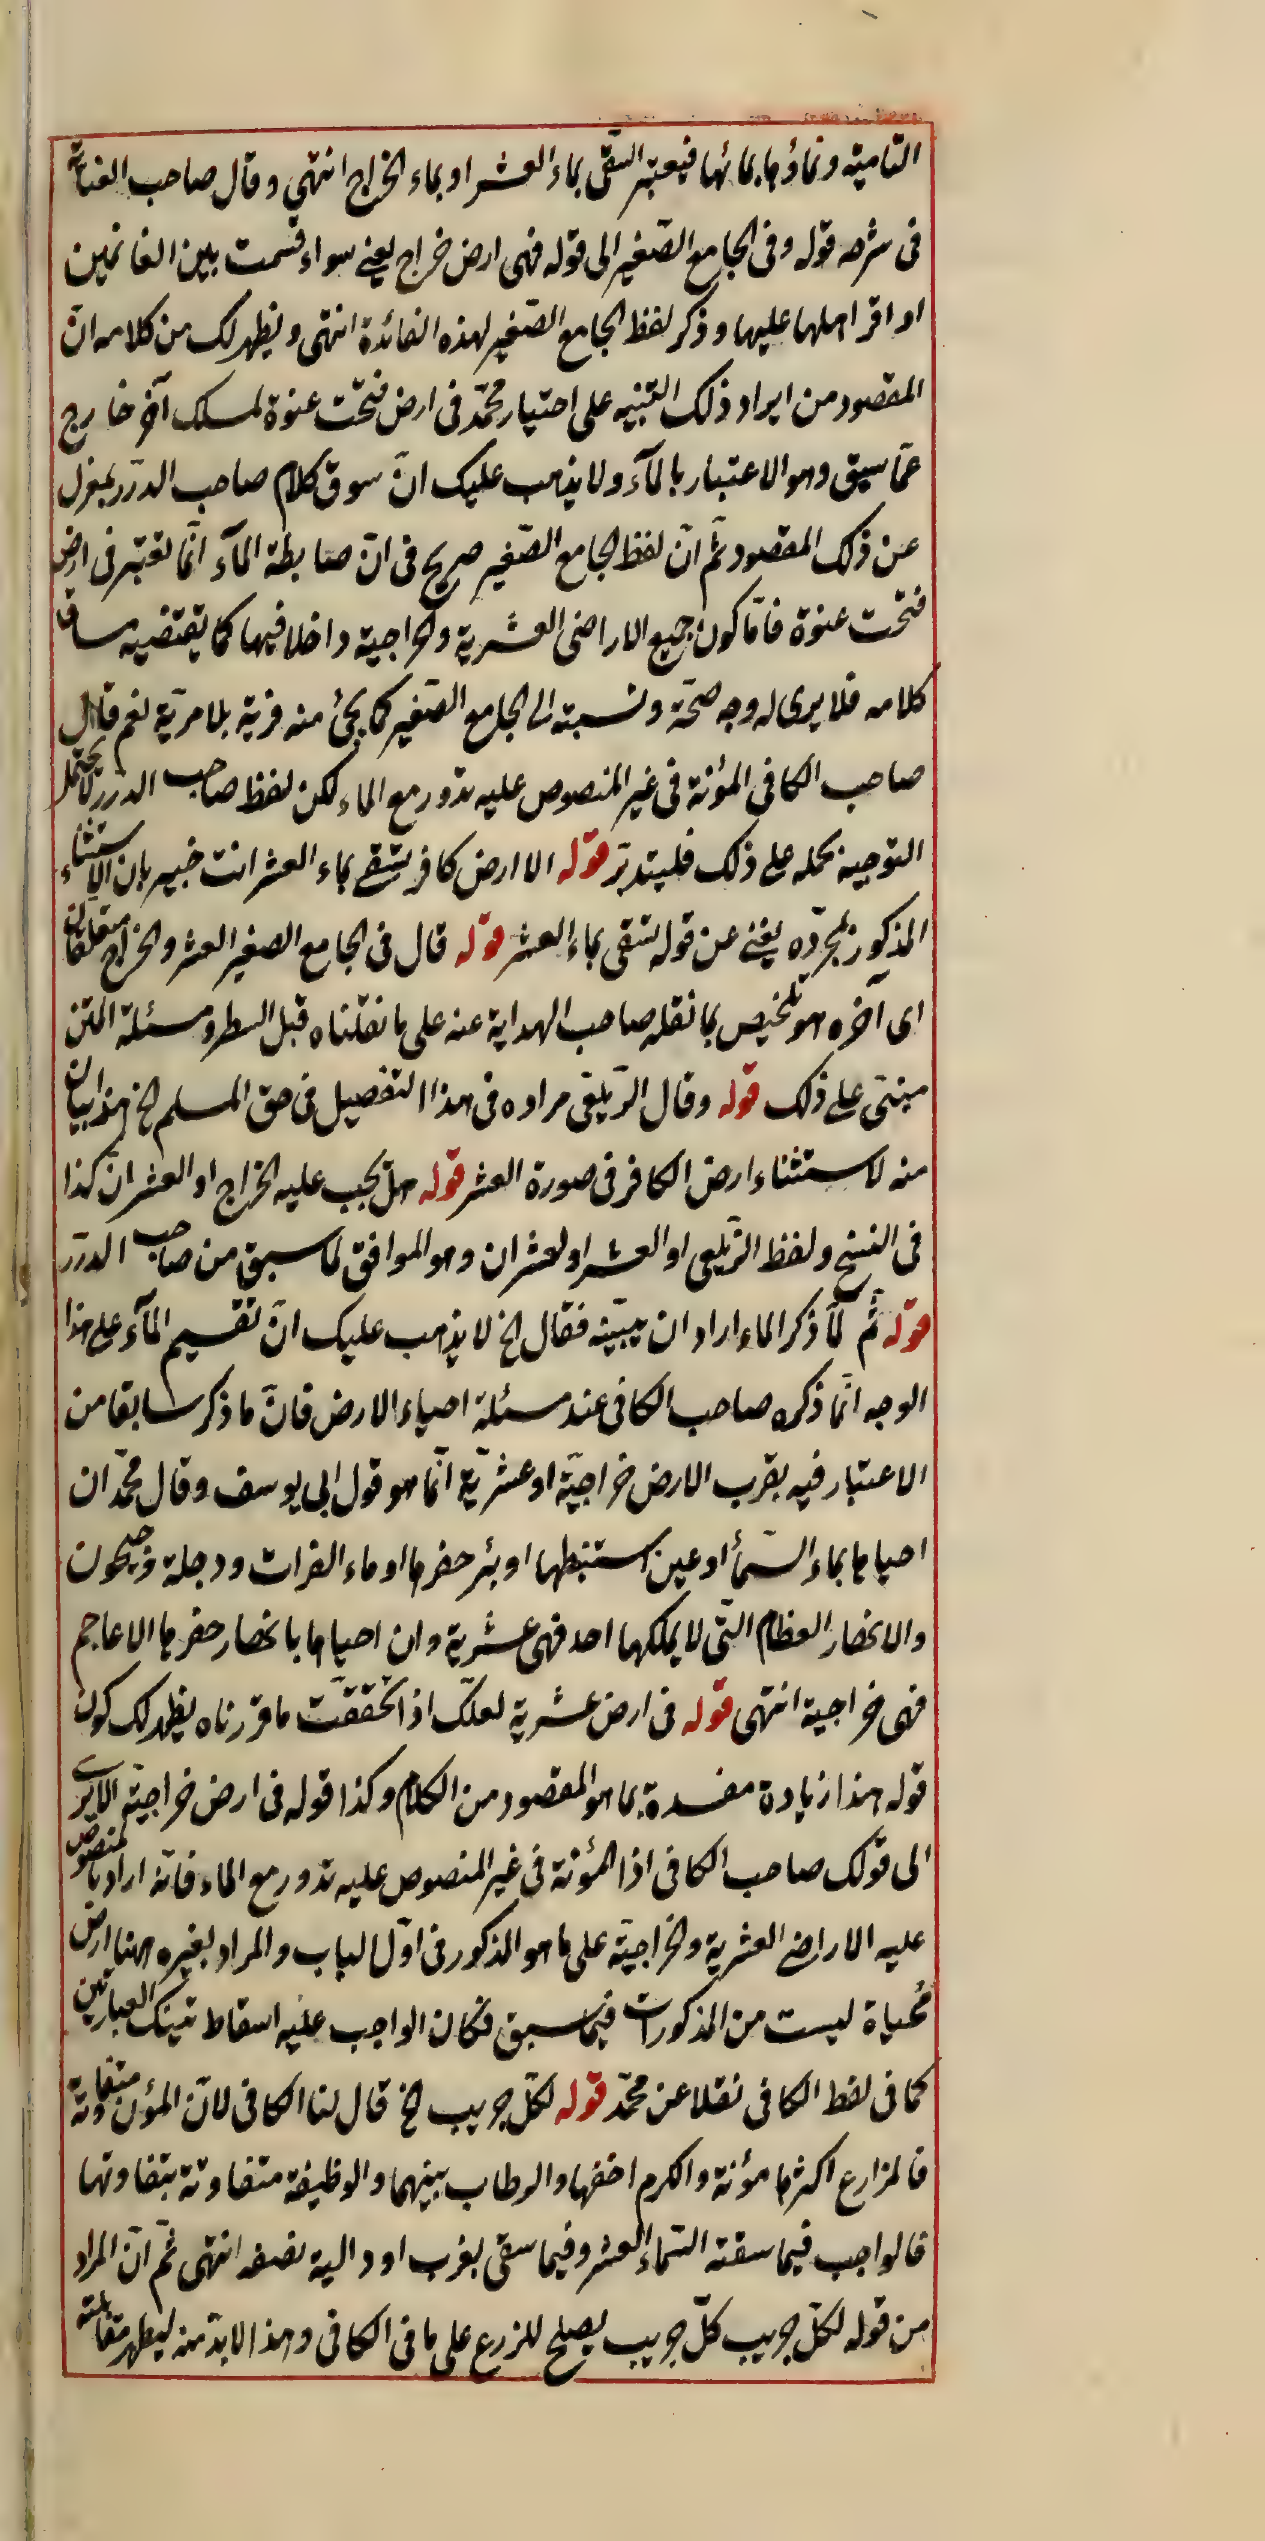 النامية ونماؤها بمائها فيعتبر السقى بماء العشر او بماء الخراج انتهى وقال صاحب العناية
فى شرحه قوله وفى الجامع الصغير الى قوله فهى ارض خراج يعنى سواء قسمت بين الغانمين
او اقر اهلها عليها وذكر لفظ الجامع الصغير لهذه الفائدة انتهى ويظهر لك من كلامه انّ
المقصود من ايراد ذلك التنبيه على اختيار محمّد فى ارض فتحت عنوة لمسلك آخر خارج
عمّا سبق وهو الاعتبار بالمآء ولا يذهب عليك انّ سوق كلام صاحب الدرر بمعزل
عن ذلك المقصود ثمّ انّ لفظ الجامع الصّغير صريح فى انّ ضابطة المآء انّما تعتبر فى ارض
فتحت عنوة فامّا كون جميع الاراضى العشرية والخراجية داخلا فيها كما يقتضيه مساق
كلامه فلا يرى له وجه صحّة ونسبته الى الجامع الصّغير كما يجئ منه فرية بلا مرية نعم قال
صاحب الكافى المؤنة فى غير المنصوص عليه تدور مع الماء لكن لفظ صاحب الدرر لا يحتمل
التوجيه بحمله على ذلك فليتدبّر قوله الا ارض كافر تسقى بماء العشر انت خبير بان الاستثناء
المذكور بمجرّده يغنى عن قوله تسقى بماء العشر قوله قال فى الجامع الصغير العشر والخراج متعلقان
اى آخره هو تلخيص بما نقله صاحب الهداية عنه على ما نقلناه قبل السطر ومسئلة المتن
مبنىّ على ذلك قوله وقال الزّيلعى مراده فى هذا التفصيل فى حق المسلم الخ هذا بيان
منه لاستثناء ارض الكافر فى صورة العشر قوله هل يجب عليه الخراج او العشر ان كذا
فى النسخ ولفظ الزّيلعى او العشر او لعشران وهو الموافق لما سبق من صاحب الدرر
قوله ثمّ لمّا ذكر الماء اراد ان يبيّنه فقال الخ لا يذهب عليك انّ تقسيم المآء على هذا
الوجه انّما ذكره صاحب الكافى عند مسئلة احياء الارض فانّ ما ذكر سابقا من
الاعتبار فيه بقرب الارض خراجيّة او عشريّة انّما هو قول ابى يوسف وقال محمّد ان
احياها بماء السّمأ او عين استنبطها او بئر حفرها او ماء الفرات ودجلة وجيحون
والانهار العظام التّى لا يملكها احد فهى عشرية وان احياها بانهار حفرها الاعاجم
فهى خراجية انتهى قوله فى ارض عشرية لعلّك اذا تحققت ما قررناه يظهر لك كون
قوله هذا زيادة مفسدة بما هو المقصود من الكلام وكذا قوله فى ارض خراجيّة الا يرى
الى قولك صاحب الكافى اذا المؤنة فى غير المنصوص عليه تدور مع الماء فانّه اراد بالمنصوص
عليه الاراضى العشرية والخراجيّة على ما هو المذكور فى اوّل الباب والمراد بغيره ههنا ارض
مُحياة ليست من المذكورات فيما سبق فكان الواجب عليه اسقاط تينك العبارتين
كما فى لفظ الكافى نقلا عن محمّد قوله لكلّ جريب الخ قال لنا الكافى لانّ المؤن متفاوتة
فالمزارع اكثرها مؤنة والكرم اخفها والرطاب بينهما والوظيفة متفاوتة بتفاوتها
فالواجب فيما سقته السّماء العشر وفيما سقى بغرب او دالية نصفه انتهى ثمّ انّ المراد
من قوله لكلّ جريب كلّ جريب يصلح للزرع على ما فى الكافى وهذا لا بدّ منه ليظهر مقابلته